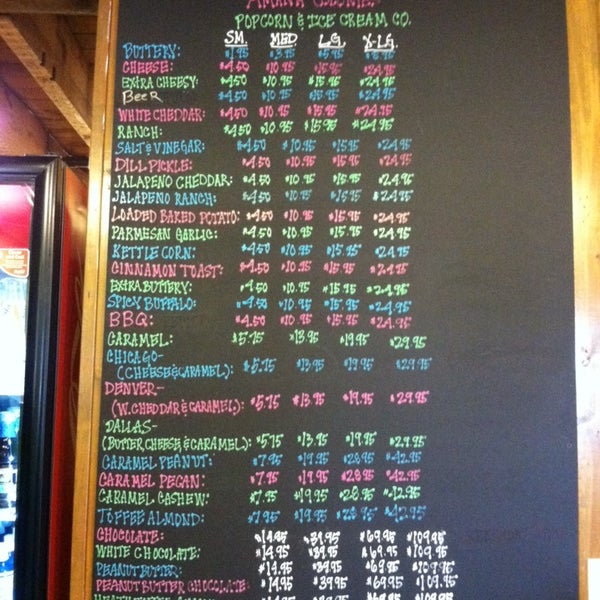 AMANA COLONIES
POPCORN & ICE CREAM CO.
SM. MED LG. X-LG.
BUTTERY: $1.95 $3.95 $5.95 $6.95
CHEESE: $4.50 $10.95 $15.95 $24.95
EXTRA CHEESY: $4.50 $10.95 $15.95 $24.95
BEER $4.50 $10.95 $15.95 $24.95
WHITE CHEDDAR: $4.50 $10.95 $15.95 $24.95
RANCH: $4.50 $10.95 $15.95 $24.95
SALT & VINEGAR: $4.50 $10.95 $15.95 $24.95
DILL PICKLE: $4.50 $10.95 $15.95 $24.95
JALAPENO CHEDDAR: $4.50 $10.95 $15.95 $24.95
JALAPENO RANCH: $4.50 $10.95 $15.95 $24.95
LOADED BAKED POTATO: $4.50 $10.95 $15.95 $24.95
PARMESAN GARLIC: $4.50 $10.95 $15.95 $24.95
KETTLE CORN: $4.50 $10.95 $15.95 $24.95
CINNAMON TOAST: $4.50 $10.95 $15.95 $24.95
EXTRA BUTTERY: $4.50 $10.95 $15.95 $24.95
SPICY BUFFALO: $4.50 $10.95 $15.95 $24.95
BBQ: $4.50 $10.95 $15.95 $24.95
CARAMEL: $5.75 $13.95 $19.95 $29.95
CHICAGO-
(CHEESE & CARAMEL): $5.75 $13.95 $19.95 $29.95
DENVER-
(W. CHEDDAR & CARAMEL): $5.75 $13.95 $19.95 $29.95
DALLAS-
(BUTTER, CHEESE, & CARAMEL): $5.75 $13.95 $19.95 $29.95
CARAMEL PEANUT: $7.95 $19.95 $28.95 $42.95
CARAMEL PECAN: $7.95 $19.95 $28.95 $42.95
CARAMEL CASHEW: $7.95 $19.95 $28.95 $42.95
TOFFEE ALMOND: $7.95 $19.95 $28.95 $42.95
CHOCOLATE: $14.95 $39.95 $69.95 $109.95
WHITE CHOCOLATE: $14.95 $39.95 $69.95 $109.95
PEANUT BUTTER: $14.95 $39.95 $69.95 $109.95
PEANUT BUTTER CHOCOLATE: $14.95 $39.95 $69.95 $109.95